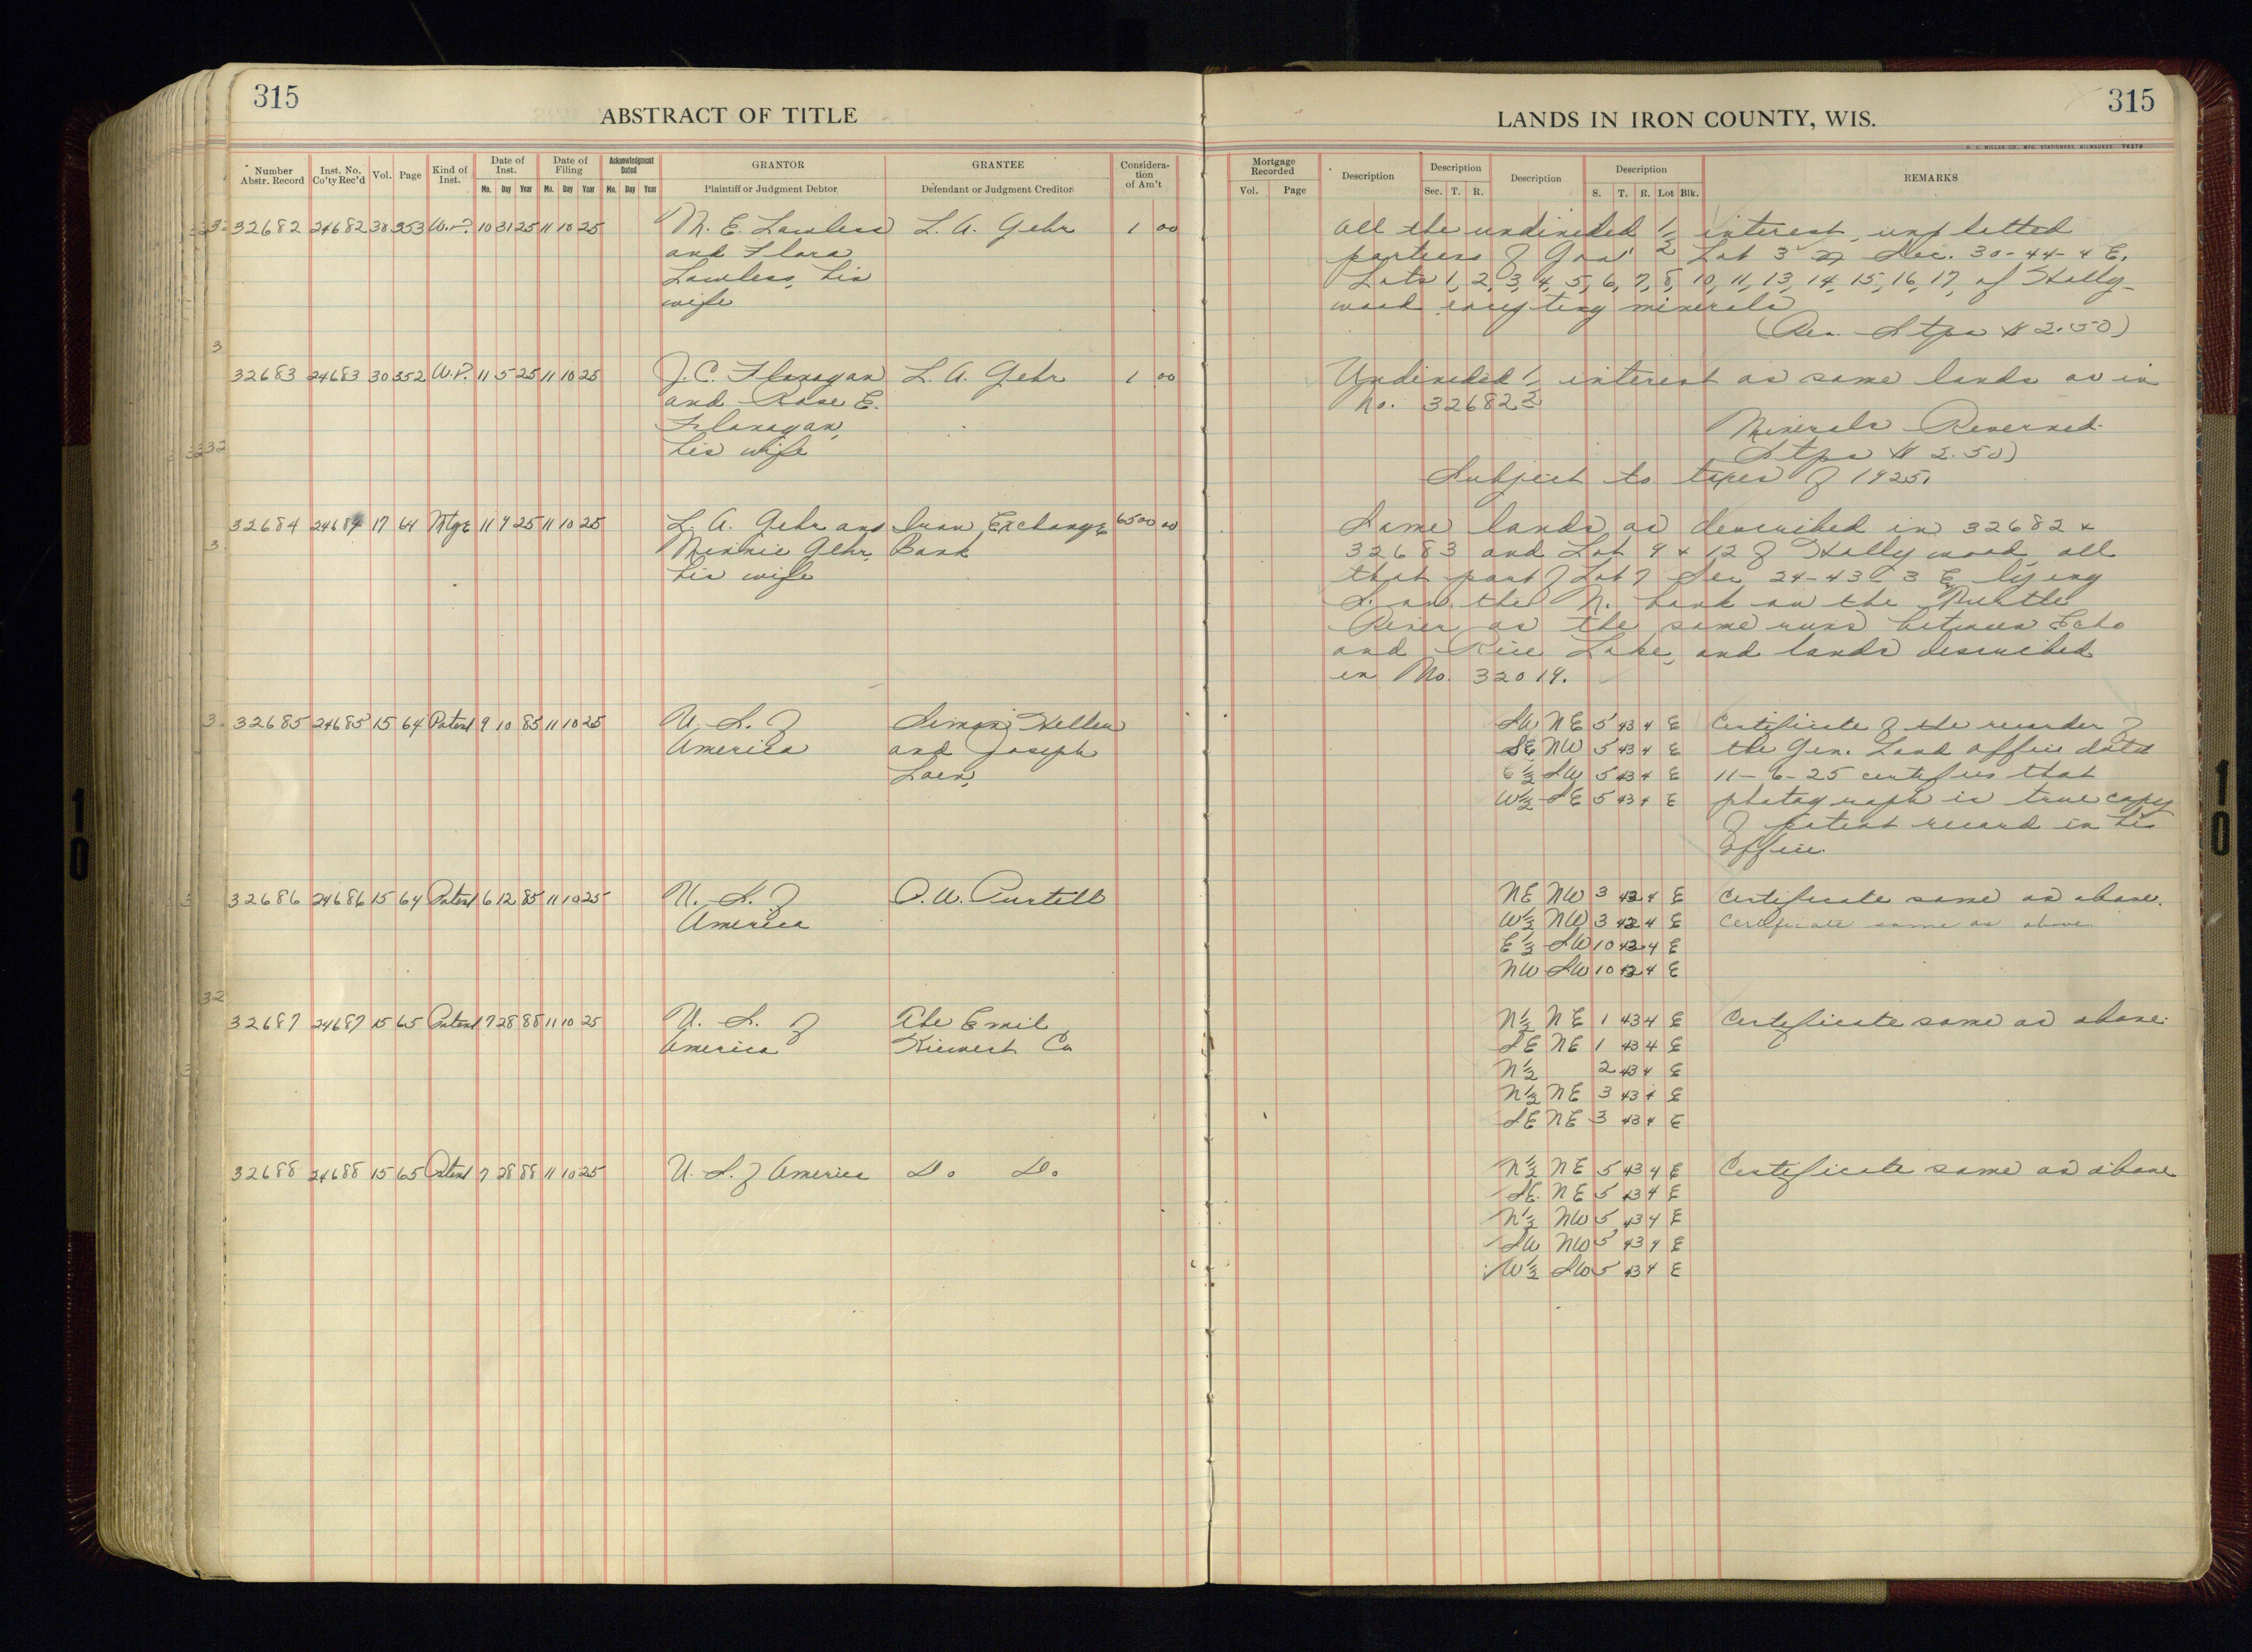 315
ABSTRACT OF TITLE
Number Abstr. Record
Inst. No. Co'ty Rec'd
Vol.
Page
Kind of Inst.
Date of Inst.
Mo. Day Year
Date of Filing
Mo. Day Year
Acknowledgment Dated
Mo. Day Year
GRANTOR
Plaintiff or Judgment Debtor
GRANTEE
Defendant or Judgment Creditor
Considera-
tion
of Am't
32682 24682 30 353 W.D. 10 31 25 11 10 25 M. E. Lawless L. A. Gehr 1 00
and Flora
Lawless, his
wife
32683 24683 30 352 W.D. 11 5 25 11 10 25 J. C. Flanagan L. A. Gehr 1 00
and Rose E.
Flanagan,
his wife
32684 24684 17 64 Mtge 11 9 25 11 10 25 L. A. Gehr and Iron Exchange 6500 00
Minnie Gehr, Bank
his wife
32685 24685 15 64 Patent 9 10 85 11 10 25 U. S. of Simon Heller
America and Joseph
32686 24686 15 64 Patent 6 12 85 11 10 25 U. S. of O. W. Purtell
America
32687 24687 15 65 Patent 7 28 88 11 10 25 U. S. of The Emil
America Kiewert Co
32688 24688 15 65 Patent 7 28 88 11 10 25 U. S. of America Do Do
315
LANDS IN IRON COUNTY, WIS.
H. C. MILLER CO., MFG. STATIONERS, MILWAUKEE
Mortgage Recorded
Vol. Page
Description
Description
Sec. T. R.
Description
Description
S. T. R. Lot Blk.
REMARKS
All the undivided 1/2 interest, unplatted
portions of Gov't Lot 3 Sec. 30-44-4 E.
Lots 1, 2, 3, 4, 5, 6, 7, 8, 10, 11, 13, 14, 15, 16, 17, of Holly-
wood excepting minerals
(Rev. Stps $2.50)
Undivided 1/2 interest as same lands as in
No. 32682
Minerals Reserved.
Stps $2.50)
Subject to taxes of 1925.
Same lands as described in 32682 &
32683 and Lot 9 & 12 of Hollywood, all
that part of Lot 7 Sec 24-43-3 E lying
S. on the N. bank on the Turtle
River as the same runs between Echo
and Rice Lake, and lands described
in No. 32019.
SW NE 5 43 4 E Certificate of the recorder of
SE NW 5 43 4 E the Gen. Land office dated
E1/2 SW 5 43 4 E 11-6-25 certifies that
W1/2 SE 5 43 4 E photograph is true copy
of patent record in his
office.
NE NW 3 42 4 E Certificate same as above.
W1/2 NW 3 42 4 E Certificate same as above.
E1/2 SW 10 42 4 E
NW SW 10 42 4 E
N1/2 NE 1 43 4 E Certificate same as above.
SE NE 1 43 4 E
N1/2 2 43 4 E
N1/2 NE 3 43 4 E
SE NE 3 43 4 E
N1/2 NE 5 43 4 E Certificate same as above
SE. NE 5 43 4 E
N1/2 NW 5 43 4 E
SW NW 5 43 4 E
W1/2 SW 5 43 4 E
10
10